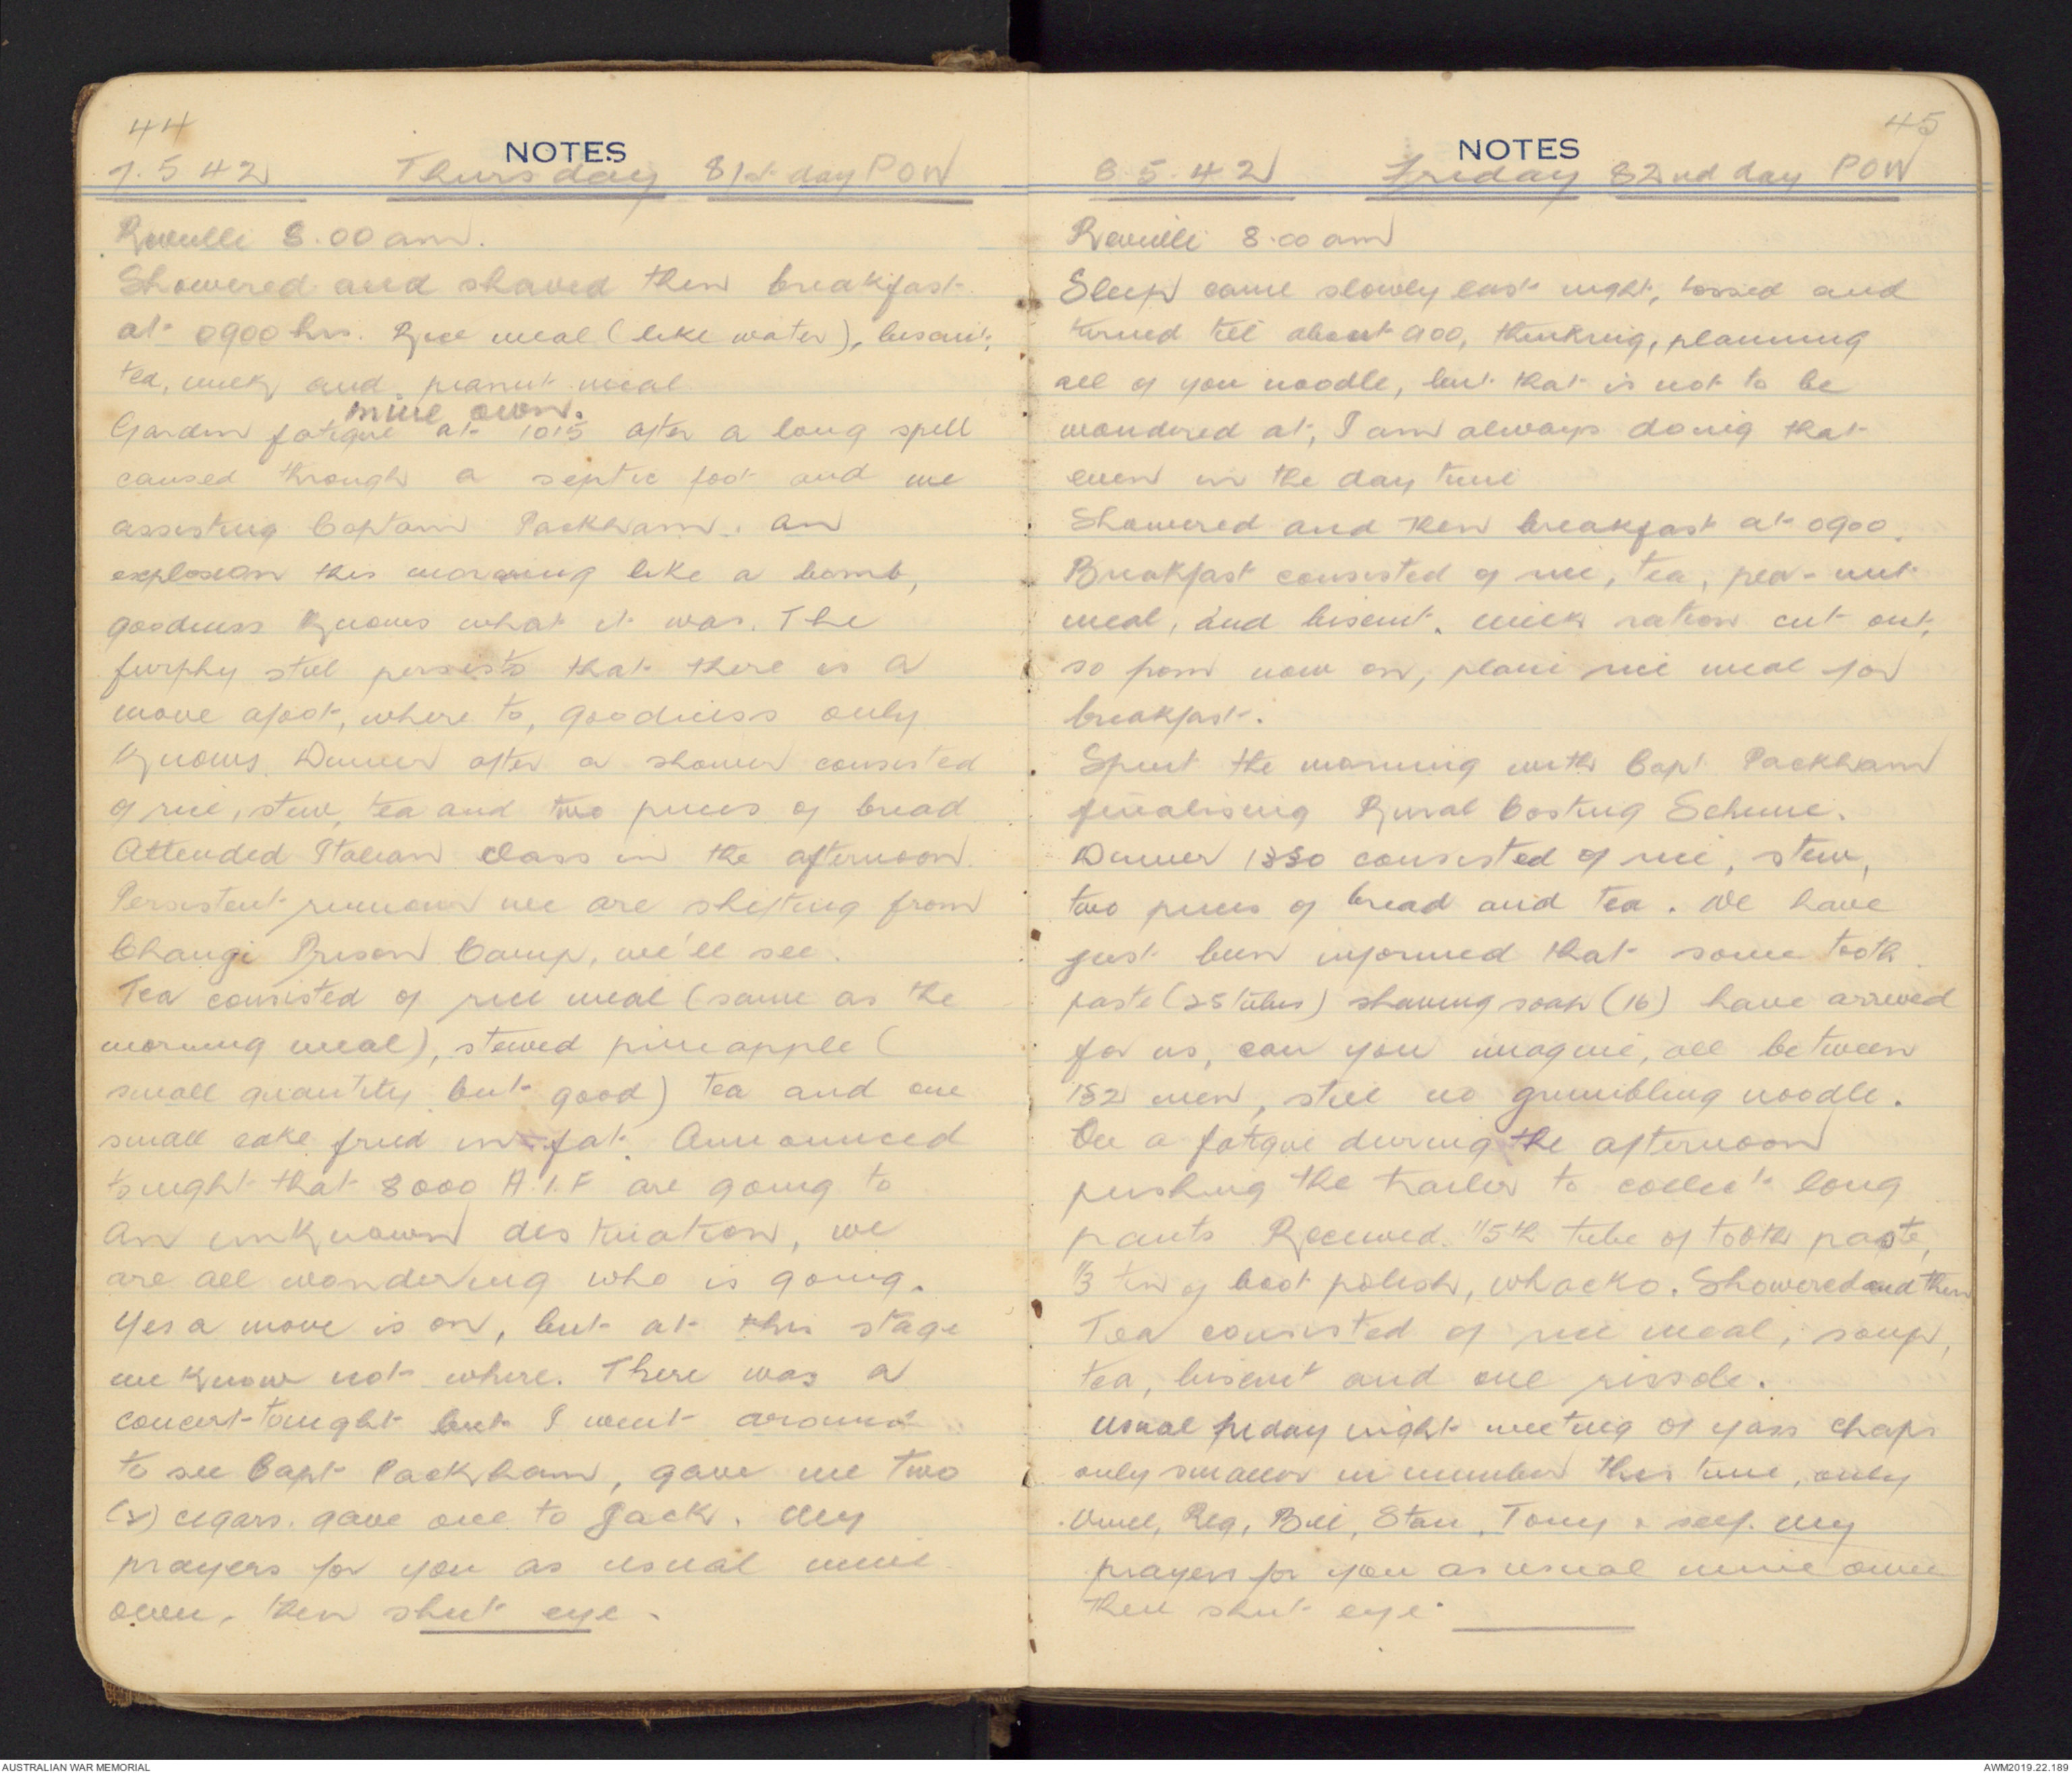 44
NOTES
7.5.42 Thursday 81st day POW
Reveille 8.00am.
Showered and shaved then breakfast
at 0900 hrs. Rice meal (like water), biscuit,
tea, milk and peanut meal
mine own.
Garden fatigue at 1015 after a long spell
caused through a septic foot and me
assisting Captain Packham. An
explosion this morning like a bomb,
goodness knows what it was. The
furphy still persists that there is a
move afoot, where to, goodness only
knows. Dinner after a shower consisted
of rice, stew, tea and two pieces of bread
Attended Italian class in the afternoon.
Persistent rumour we are shifting from
Changi Prison Camp, we'll see.
Tea consisted of rice meal (same as the
morning meal), stewed pineapple (
small quantity but good) tea and one
small cake fried in fat. Announced
tonight that 8000 A.I.F are going to
an unknown destination, we
are all wondering who is going.
Yes a move is on, but at this stage
we know not where. There was a
concert tonight but I went around
to see Capt Packham, gave me two
(2) cigars. gave one to Jack. My
prayers for you as usual mine
own, then shut eye.
45
NOTES
8.5.42 Friday 82nd day POW
Reveille 8.00am
Sleep came slowly last night, tossed and
turned till about 0100, thinking, planning
all of you noodle, but that is not to be
wondered at, I am always doing that
even in the day time
Showered and then breakfast at 0900.
Breakfast consisted of rice, tea, pea-nut
meal, and biscuit. milk ration cut out,
so from now on, plain rice meal for
breakfast.
Spent the morning with Capt Packham
finalising Rural Costing Scheme.
Dinner 1330 consisted of rice, stew,
two pieces of bread and tea. We have
just been informed that some tooth
paste (25 tubes) shaving soap (16) have arrived
for us, can you imagine, all between
132 men, still no grumbling noodle.
On a fatigue during the afternoon
pushing the trailer to collect long
pants Received 1/5th tube of tooth paste,
1/3 tin of boot polish, whacko. Showered and then
Tea consisted of rice meal, soup,
tea, biscuit and one rissole.
Usual friday night meeting of yass chaps
only smaller in number this time, only
Reg, Bill, Stan, Tony & self. My
prayers for you as usual mine own
then shut eye.
AUSTRALIAN WAR MEMORIAL
AWM2019.22.189